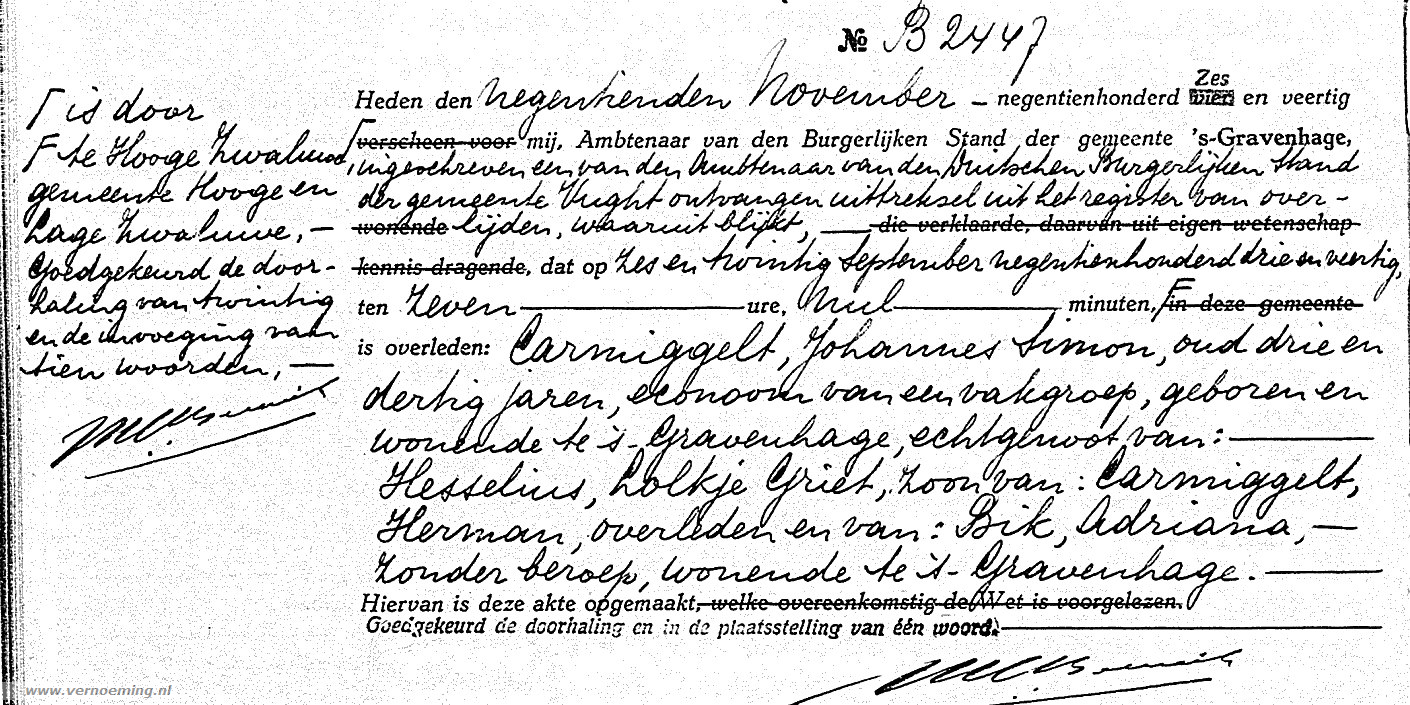 № B 2447
Heden den negentienden November - negentienhonderd vier Zes en veertig
verscheen voor mij, Ambtenaar van den Burgerlijken Stand der gemeente 's-Gravenhage,
ingeschreven een van den Ambtenaar van den Duitschen Burgerlijken Stand
der gemeente Vught ontvangen uittreksel uit het register van over-
wonende lijden, waaruit blijkt, — die verklaarde, daarvan uit eigen wetenschap
kennis dragende, dat op Zes en twintig September negentienhonderd drie en veertig,
ten Zeven — ure, Nul — minuten, F in deze gemeente
is overleden: Carmiggelt, Johannes Simon, oud drie en
dertig jaren, econoom van een vakgroep, geboren en
wonende te 's-Gravenhage, echtgenoot van: —
Hesselius, Lolkje Griet, zoon van: Carmiggelt,
Herman, overleden en van: Bik, Adriana, —
zonder beroep, wonende te 's-Gravenhage. —
Hiervan is deze akte opgemaakt, welke overeenkomstig de Wet is voorgelezen.
Goedgekeurd de doorhaling en in de plaatsstelling van één woord. —
Γ is door
F te Hooge Zwaluwe,
gemeente Hooge en
Lage Zwaluwe, —
Goedgekeurd de door-
haling van twintig
en de invoeging van
tien woorden, —
www.vernoeming.nl